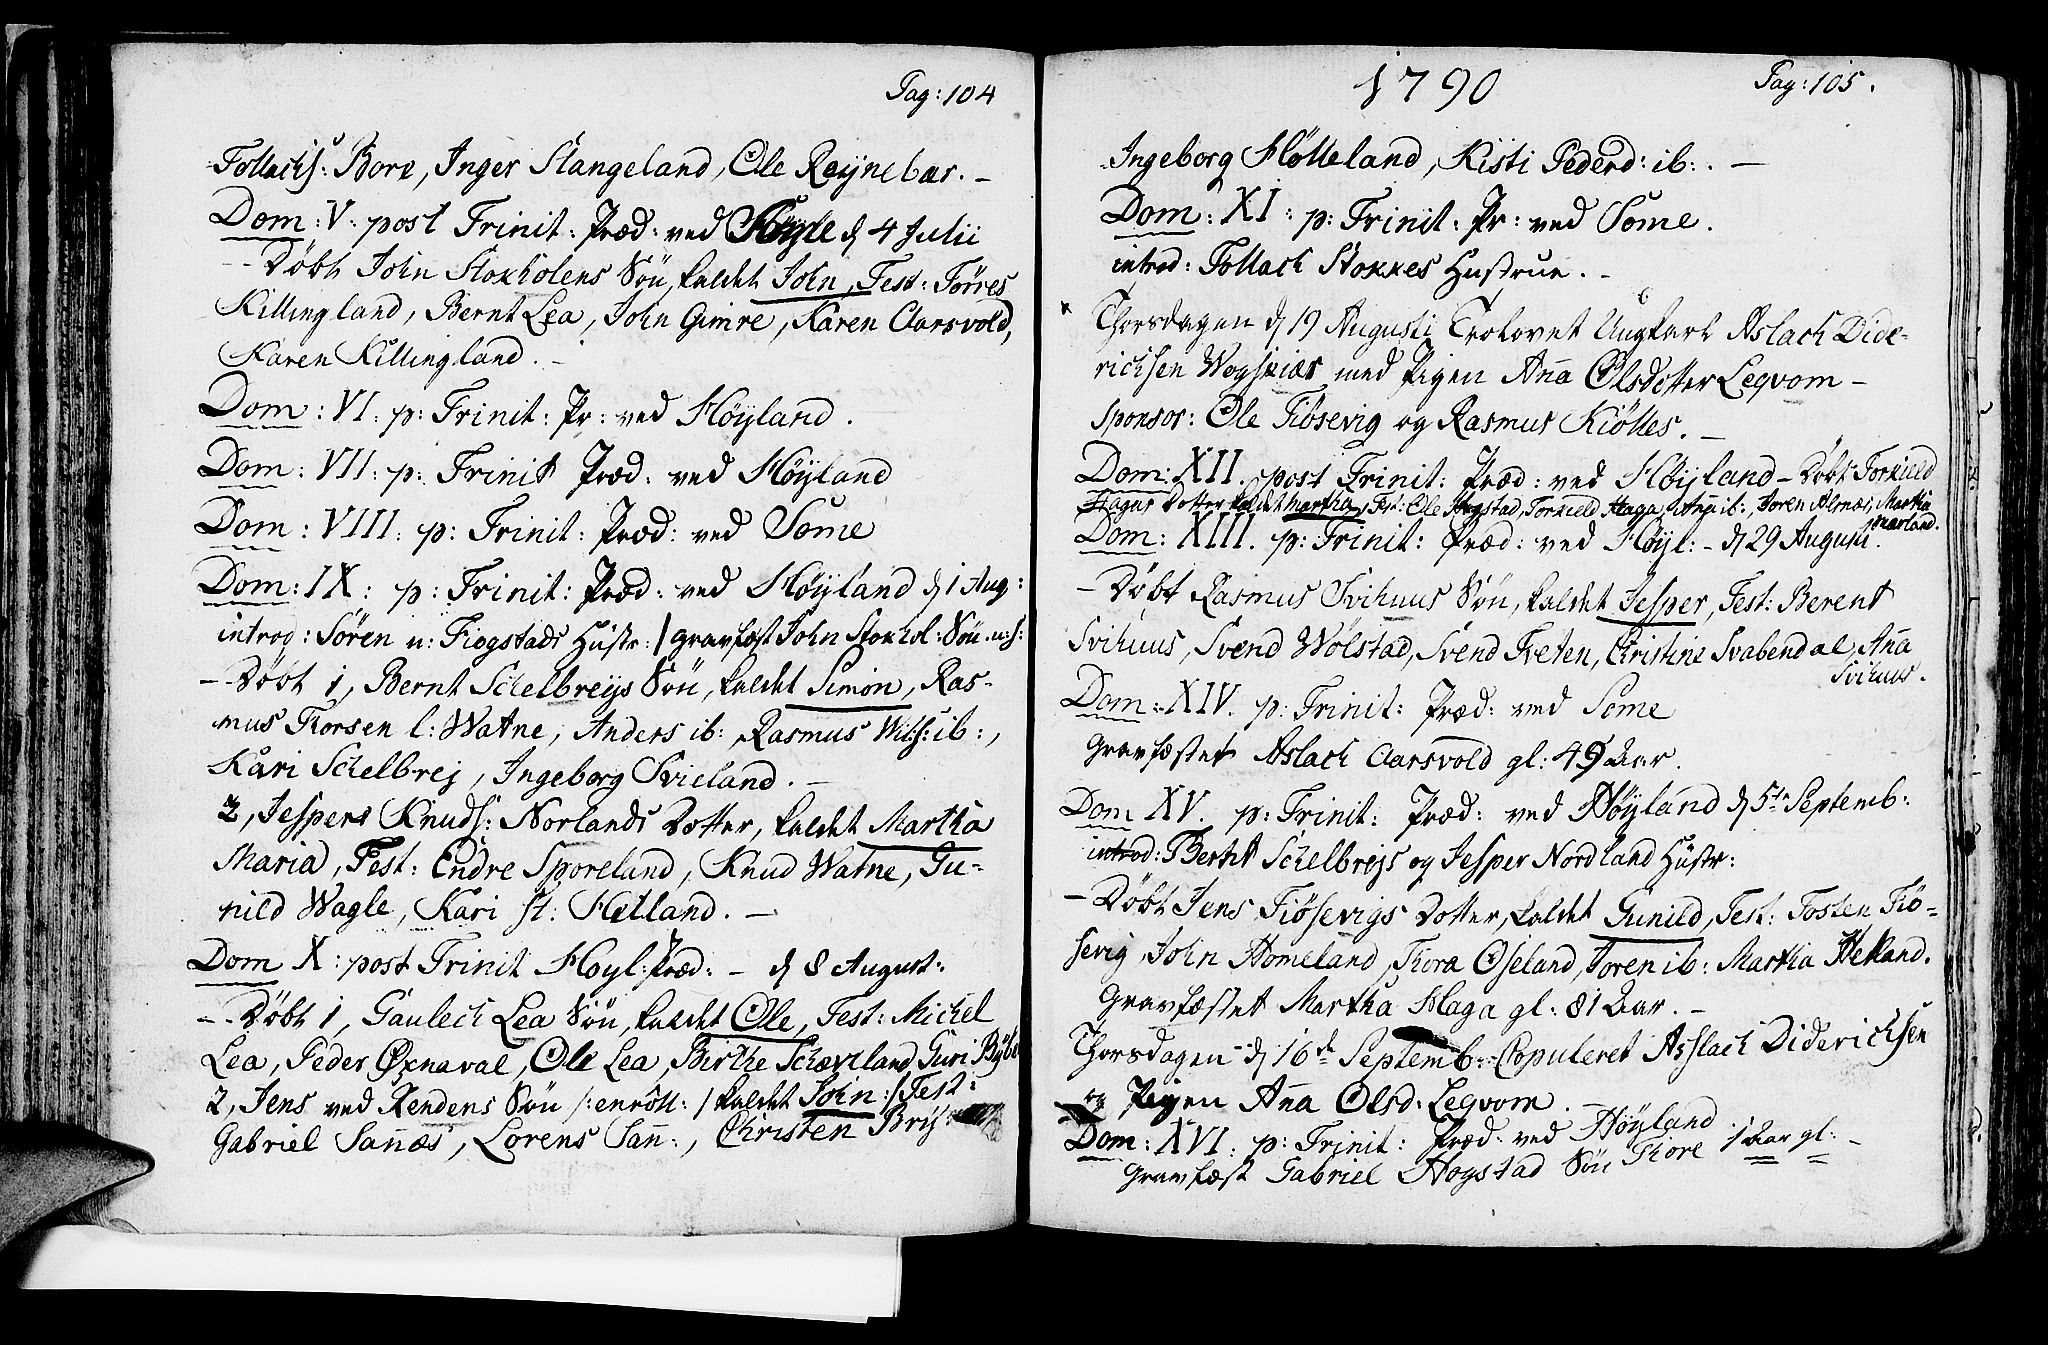 Pag: 104
Tollachs: Bore, Inger Stangeland, Ole Reynebær. -
Dom: V. post Trinit: Præd: ved Høyle d 4 Julii
- Döbt John Stokholens Sön, kaldet John, Test: Törres
Killingland, Bernt Lea, John Gimre, Karen Aarsvold,
Karen Killingland. -
Dom: VI. p: Trinit: Pr: ved Höyland.
Dom: VII: p: Trinit Præd: ved Höyland
Dom: VIII: p: Trinit: Præd: ved Some
Dom: IX: p: Trinit: Præd: ved Höyland d 1 Aug:
introd: Sören n: Frogstads Hustr: / gravfæst John Stokhol: Sön n: s:
- Döbt 1, Bernt Schelbreys Sön, kaldet Simon, Ras-
mus Thorsen l: Watne, Anders ib:, Rasmus Wils: ib:,
Kari Schelbrej, Ingeborg Svieland. -
2, Jespers Knuds: Norlands Dotter, kaldet Martha
Maria, Test: Endre Sporeland, Knud Watne, Gu-
nild Wagle, Kari st: Hetland. -
Dom X: post Trinit Hoyl: Præd: - d 8 August:
- Döbt 1, Gaulech Lea Sön, kaldet Ole, Test: Michel
Lea, Peder Øxnaval, Ole Lea, Birthe Schæveland, Guri Bybe
2, Jens ved Rendens Sön /: enröll: / kaldet John: / Test:
Gabriel Sanñæs, Lorens Sañ:, Christen Brÿ:
1790
Pag: 105.
Ingeborg Hölleland, Kisti Pederd: ib: -
Dom: XI: p: Trinit: Pr: ved Some.
introd: Tollach Stokkes Hustrue. -
Thorsdagen d 19 Augusti Trolovet Ungkarl Aslach Dide-
richsen Wogskiær med Pigen Aña Olsdotter Leqvom -
Sponsor: Ole Tiösevig og Rasmus Kiölles. -
Dom: XII. post Trinit: Præd: ved Höyland - Döbt Torkield
Hagas Dotter kaldet Martha, Test: Ole Hogstad, Torkield Haga, Aña ib:, Soren Alnæs, Martha
Nærland.
Dom: XIII. p: Trinit: Præd: ved Höyl: - d 29 Augusti.
- Döbt Rasmus Svihuus Sön, kaldet Jesper, Test: Berent
Svihuus, Svend Wölstad, Svend Tveten, Christine Svabendal, Aña
Svihuus.
Dom: XIV. p: Trinit: Præd: ved Some
Gravfæstet Aslach Aarsvold gl: 49 Aar.
Dom XV. p: Trinit: Præd: ved Höyland d 5te Septemb:
introd: Bernt Schelbrejs og Jesper Nordland Hustr:
- Döbt Jens Tiösevigs Dotter, kaldet Gunild, Test: Tosten Tiö-
sevig, John Homeland, Thora Oseland, Toren ib: Martha Hetland.
Gravfæstet Martha Haga gl: 81 Aar. -
Thorsdagen d 16d Septemb: Copuleret Asslach Diderichsen
og Pigen Aña Olsd: Leqvom. -
Dom: XVI. p: Trinit: Præd: ved Höyland
Gravfæst Gabriel Hogstad Sön Thore 1 Aar gl: -